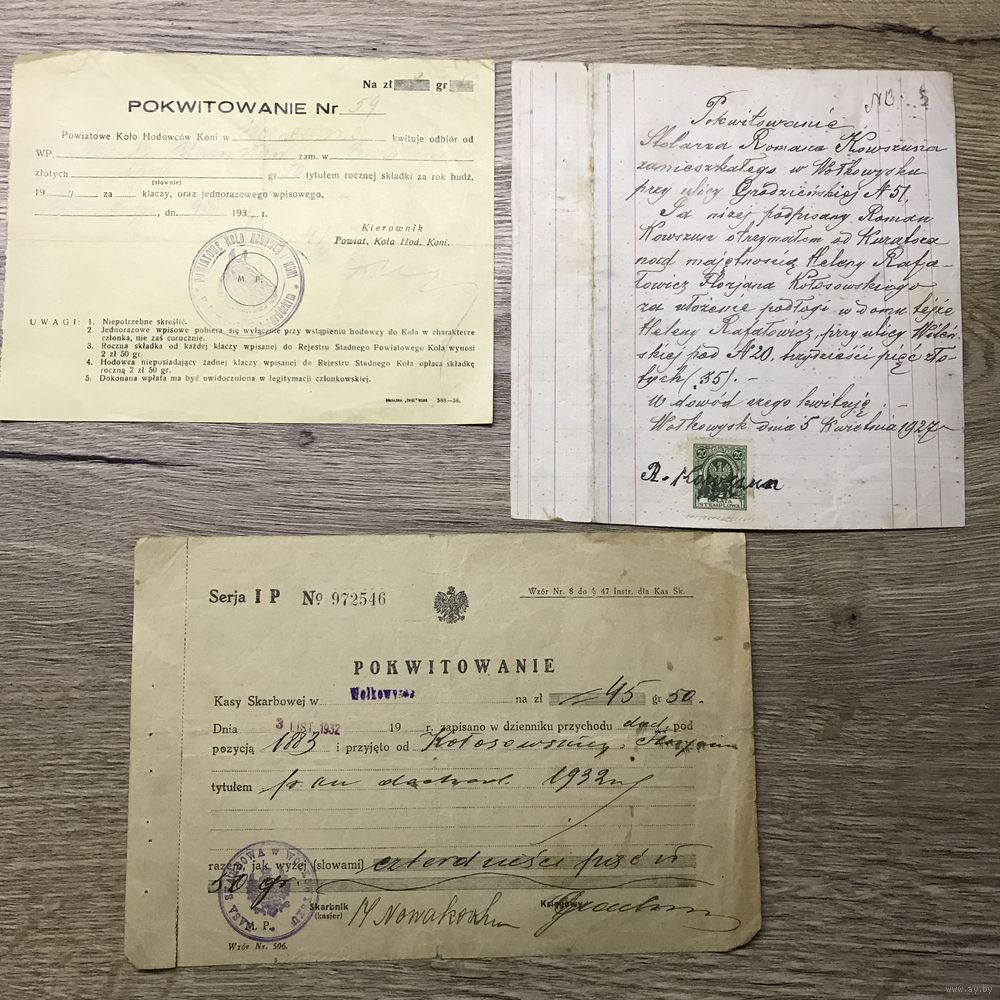 Na zł gr
POKWITOWANIE Nr 59
Powiatowe Koło Hodowców Koni w kwituje odbiór od
WP. zam. w
złotych gr. tytułem rocznej składki za rok budż.
(słownie)
19 za klaczy, oraz jednorazowego wpisowego.
, dn. 193 r.
Kierownik
Powiat. Koła Hod. Koni.
POWIATOWE KOŁO HODOWCÓW KONI
M. P.
UWAGI: 1. Niepotrzebne skreślić.
2. Jednorazowe wpisowe pobiera się wyłącznie przy wstąpieniu hodowcy do Koła w charakterze
członka, nie zaś corocznie.
3. Roczna składka od każdej klaczy wpisanej do Rejestru Stadnego Powiatowego Koła wynosi
2 zł 50 gr.
4. Hodowca nieposiadający żadnej klaczy wpisanej do Rejestru Stadnego Koła opłaca składkę
roczną 2 zł 50 gr.
5. Dokonana wpłata ma być uwidoczniona w legitymacji członkowskiej.
588—38.
Pokwitowanie
Stolarza Romana Kowszuna
zamieszkałego w Wołkowysku
przy ulicy Grodzieńskiej N 51.
Ja niżej podpisany Roman
Kowszun otrzymałem od Kuratora
nad majętnością Heleny Rafa-
łowicz Florjana Kołosowskiego
za ułożenie podłogi w domu tejże
Heleny Rafałowicz, przy ulicy Wileń-
skiej pod N 20, trzydzieści pięć zło-
tych (35). —
W dowód czego kwituję. —
Wołkowysk dnia 5 kwietnia 1927
R. Kowszun
20 20
OPŁATA
STEMPLOWA
Serja I P № 972546
Wzór Nr. 8 do § 47 Instr. dla Kas Sk.
POKWITOWANIE
Kasy Skarbowej w Wołkowysku na zł 45 gr 50.
Dnia 3 LIST. 1932 19 r. zapisano w dzienniku przychodu dod. pod
pozycją 1883 i przyjęto od
tytułem 1932
razem, jak wyżej (słowami) czterdzieści pięć zł
50 gr
KASA SKARBOWA w WOŁKOWYSKU
M. P.
Skarbnik
(kasjer)
Księgowy
Wzór Nr. 506.
www.ay.by